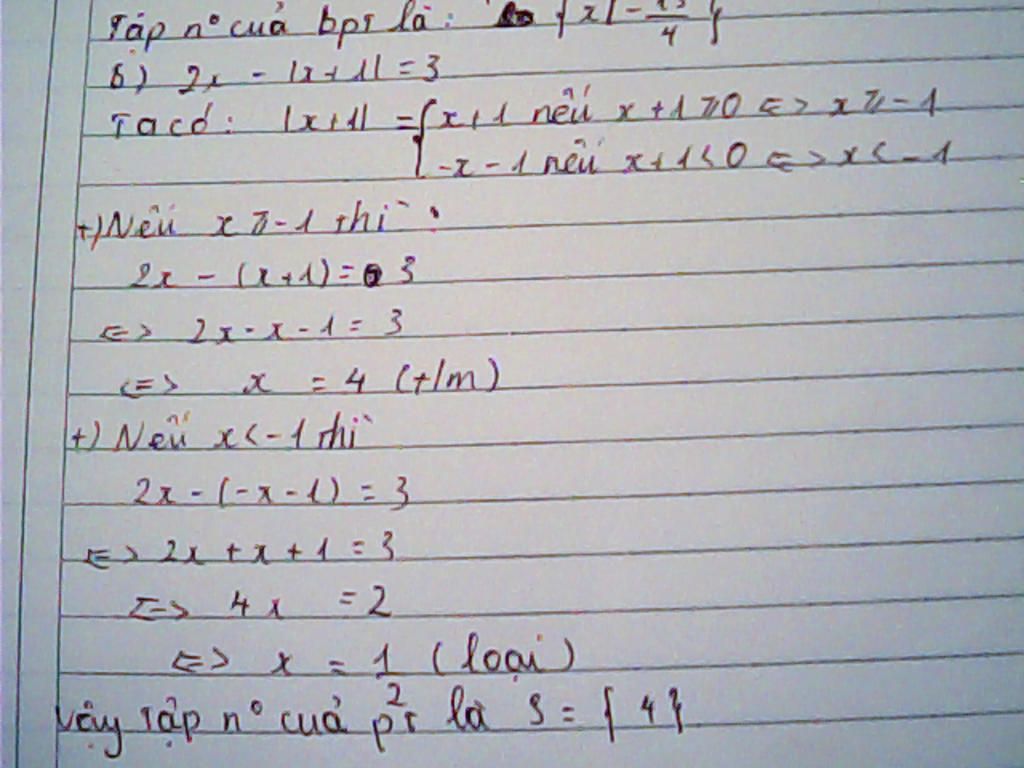 Tập nº cuả bpt là: {x | -
4 }
b) 2x - |x+1| = 3
Ta có: |x+1| = { x+1 nếu x+1 ≥ 0 <=> x ≥ -1
-x-1 nếu x+1 < 0 <=> x < -1
+) Nếu x ≥ -1 thì:
2x - (x+1) = 3
<=> 2x - x - 1 = 3
<=> x = 4 (t/m)
+) Nếu x < -1 thì
2x - (-x-1) = 3
<=> 2x + x + 1 = 3
<=> 4x = 2
<=> x = 1/2 (loại)
Vậy tập nº cuả pt là S = { 4 }